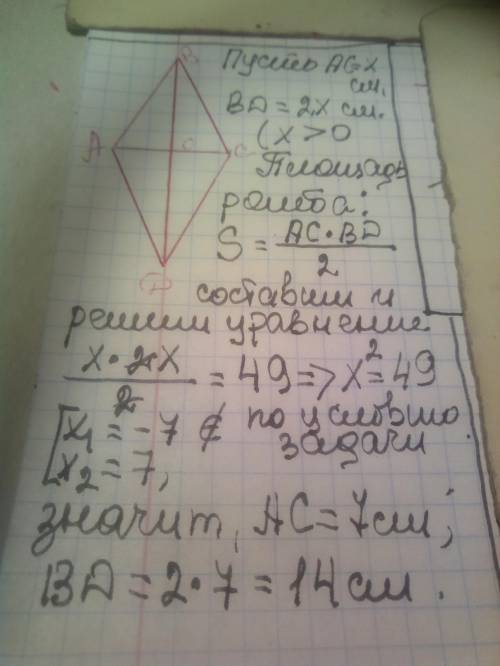 B
A
O
C
D
Пусть AC=x
см,
BD = 2x см.
(x > 0
Площадь
ромба:
S = AC·BD / 2
составим и
решим уравнение
x·2x / 2 = 49 => x² = 49
[x₁ = -7 ∉ по условию
задачи
[x₂ = 7,
значит, AC = 7см;
BD = 2·7 = 14 см.